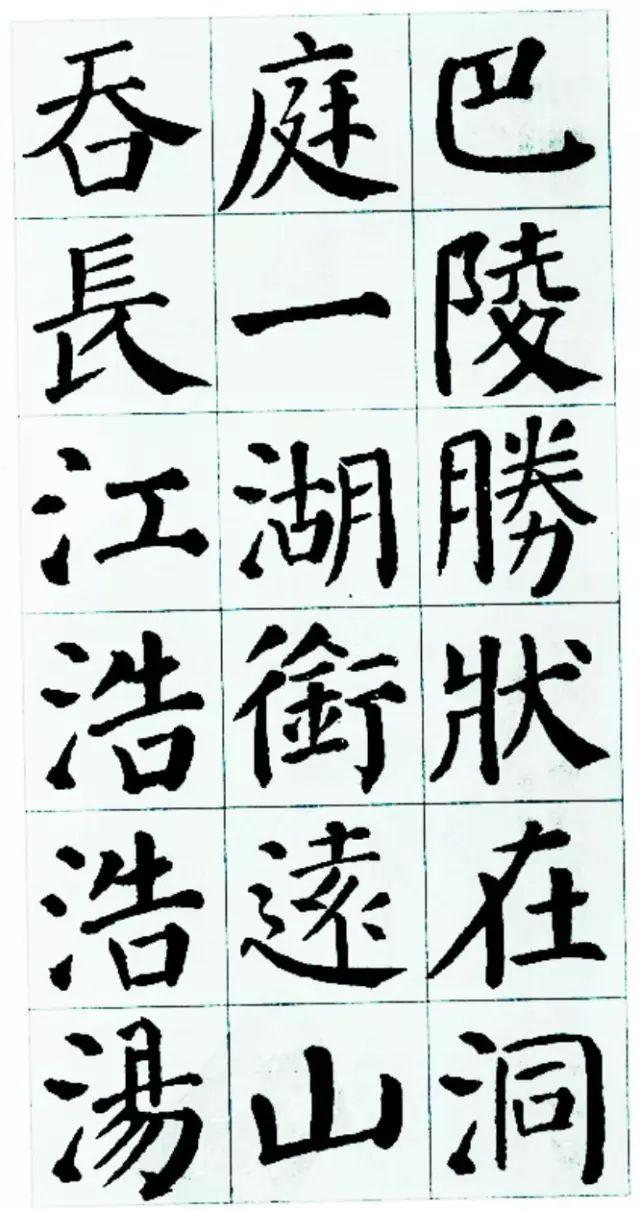 巴陵勝狀在洞
庭一湖銜遠山
吞長江浩浩湯